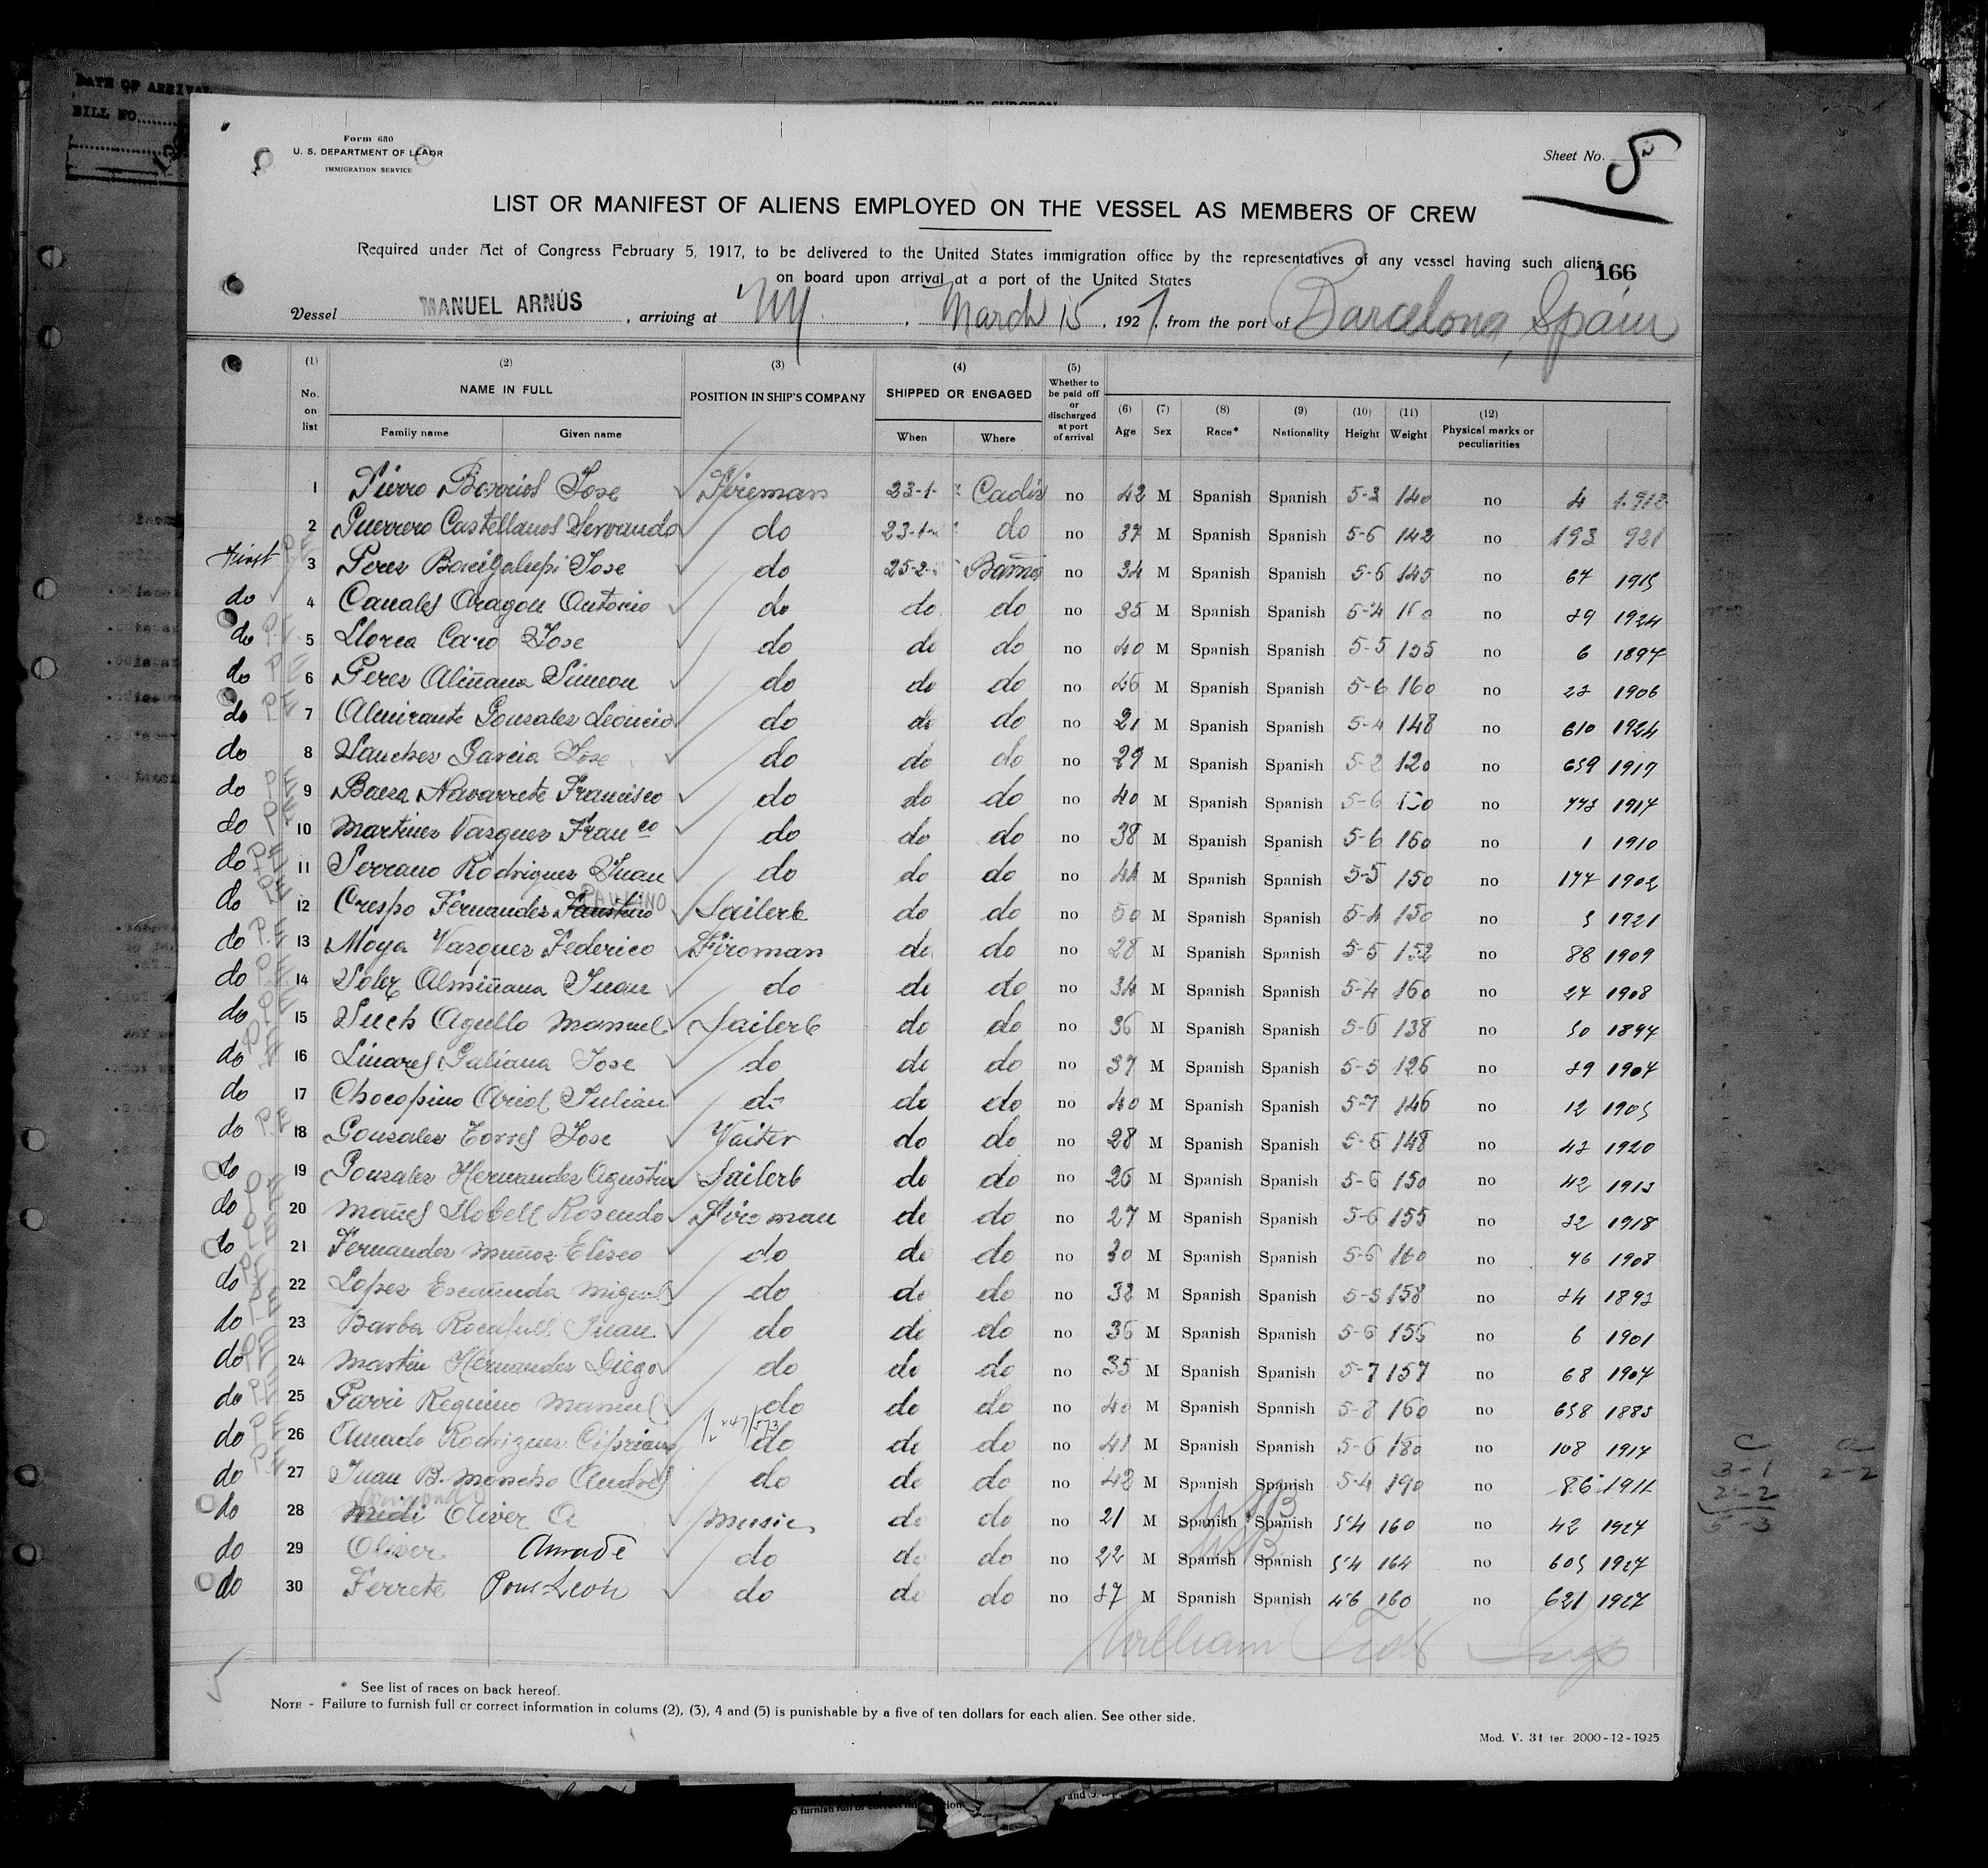 DATE OF ARRIVAL
BILL NO
Form 680
U. S. DEPARTMENT OF LABOR
IMMIGRATION SERVICE
Sheet No. 5
LIST OR MANIFEST OF ALIENS EMPLOYED ON THE VESSEL AS MEMBERS OF CREW
Required under Act of Congress February 5, 1917, to be delivered to the United States immigration office by the representatives of any vessel having such aliens
on board upon arrival at a port of the United States
166
Vessel MANUEL ARNÚS, arriving at NY, March 15, 1927, from the port of Barcelona, Spain
(1) (2) (3) (4) (5)
No. on list NAME IN FULL POSITION IN SHIP'S COMPANY SHIPPED OR ENGAGED Whether to be paid off or discharged at port of arrival (6) Age (7) Sex (8) Race* (9) Nationality (10) Height (11) Weight (12) Physical marks or peculiarities
Family name Given name When Where
1 Jose Fireman 23-1- Cadiz no 42 M Spanish Spanish 5-3 140 no 4 1912
2 Guerrero Castellanos Servando do 23-1- do no 37 M Spanish Spanish 5-6 142 no 193 921
First 3 Perez Jose do 25-2- no 34 M Spanish Spanish 5-6 145 no 67 1915
do 4 Canales Aragon Antonio do do do no 35 M Spanish Spanish 5-4 no 29 1924
do P.E 5 Llorca Caro Jose do do do no 40 M Spanish Spanish 5-5 155 no 6 1897
do P.E 6 Perez Aliñana Simeon do do do no 46 M Spanish Spanish 5-6 160 no 22 1906
do P.E 7 Almirante Gonzales Leoncio do do do no 21 M Spanish Spanish 5-4 148 no 610 1924
do 8 Sanchez Garcia Jose do do do no 29 M Spanish Spanish 5-2 120 no 659 1917
do P.E 9 Baeza Navarrete Francisco do do do no 40 M Spanish Spanish 5-6 no 773 1917
do P.E 10 Martinez Vazquez Franco do do do no 38 M Spanish Spanish 5-6 160 no 1 1910
do P.E 11 Serrano Rodriguez Juan do do do no 44 M Spanish Spanish 5-5 150 no 177 1902
do P.E 12 Crespo Fernandez Faustino PAULINO Sailerb do do no 50 M Spanish Spanish 5-4 150 no 5 1921
do P.E 13 Moya Vazquez Federico Firoman do do no 28 M Spanish Spanish 5-5 152 no 88 1909
do P.E. 14 Soler Almiñana Juan do do do no 34 M Spanish Spanish 5-4 160 no 27 1908
do P.E 15 Such Agullo Manuel Sailerb do do no 36 M Spanish Spanish 5-6 138 no 50 1897
do P.E 16 Linares Galiana Jose do do do no 37 M Spanish Spanish 5-5 126 no 29 1907
do 17 Chocopino Ariol Julian do do do no 40 M Spanish Spanish 5-7 146 no 12 1905
do P.E 18 Gonzalez Torres Jose Vaiter do do no 28 M Spanish Spanish 5-6 148 no 42 1920
do 19 Gonzalez Hernandez Agustin Sailerb do do no 26 M Spanish Spanish 5-6 150 no 42 1913
do P.E 20 Mañes Llobell Rosendo Firoman do do no 27 M Spanish Spanish 5-6 155 no 22 1918
do P.E 21 Fernandez Muñoz Eliseo do do do no 30 M Spanish Spanish 5-6 160 no 76 1908
do P.E 22 Lopez Miguel do do do no 32 M Spanish Spanish 5-5 158 no 24 1892
do P.E 23 Barba Rocafull Juan do do do no 36 M Spanish Spanish 5-6 156 no 6 1901
do P.E 24 Martin Hernandez Diego do do do no 35 M Spanish Spanish 5-7 157 no 68 1907
do P.E 25 Manuel do do do no 40 M Spanish Spanish 5-8 160 no 658 1885
do P.E 26 Amado Rodriguez Cipriano do do do no 41 M Spanish Spanish 5-6 180 no 108 1917
do P.E 27 Juan B. Moncho Andres do do do no 42 M Spanish Spanish 5-4 190 no 86 1911
do 28 Oliver A music do do no 21 M Spanish Spanish 5-4 160 no 42 1927
do 29 Oliver Amade do do do no 22 M Spanish Spanish 5-4 164 no 605 1927
do 30 Ferrete Pons Leon do do do no 27 M Spanish Spanish 4-6 160 no 621 1927
William
* See list of races on back hereof.
NOTE - Failure to furnish full or correct information in colums (2), (3), 4 and (5) is punishable by a five of ten dollars for each alien. See other side.
Mod. V. 31 ter. 2000-12-1925